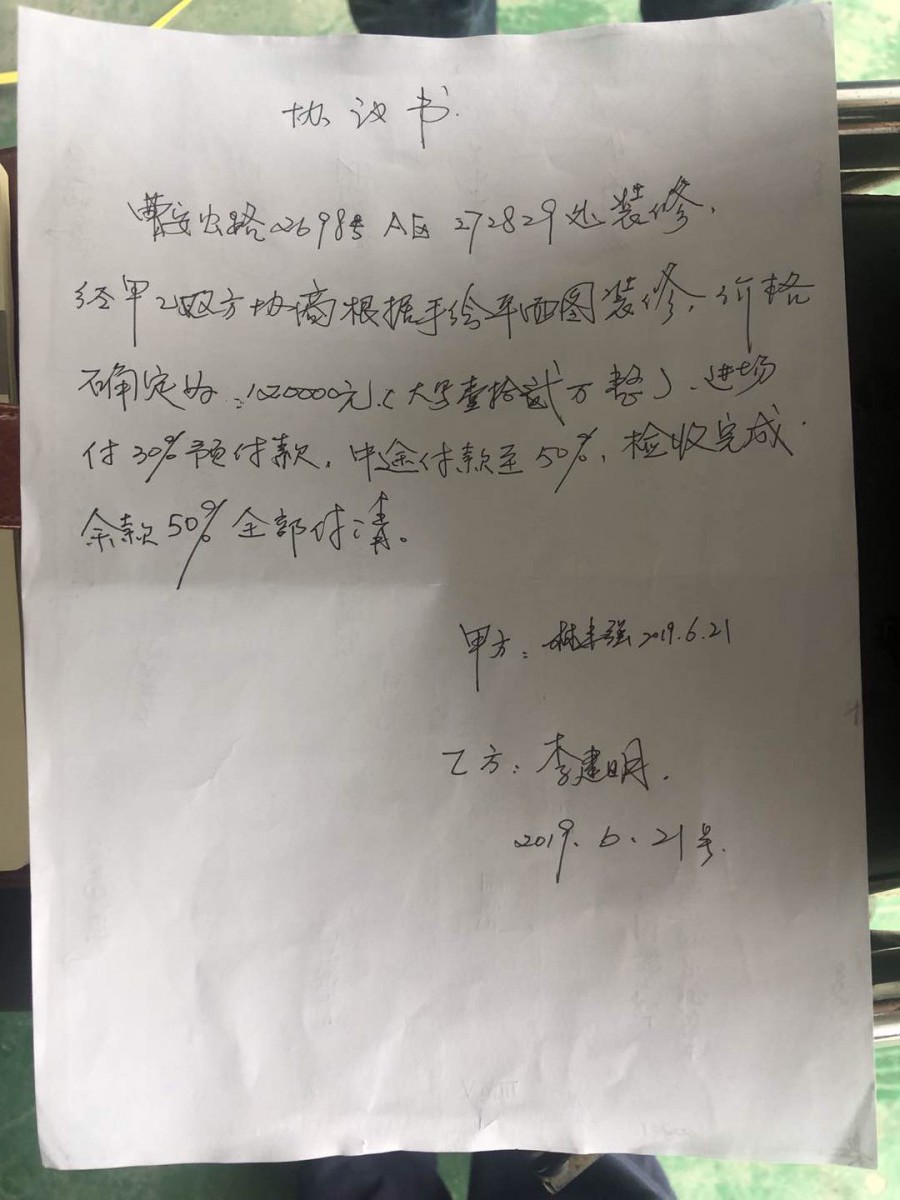 协议书
曹安公路2698号A区272829他装修,
经甲乙双方协商根据手绘平面图装修,价格
确定为:120000元(大写壹拾贰万整),进场
付30%预付款,中途付款至50%,检收完成.
余款50%全部付清。
甲方:林丰强2019.6.21
乙方:李建明.
2019.6.21号.